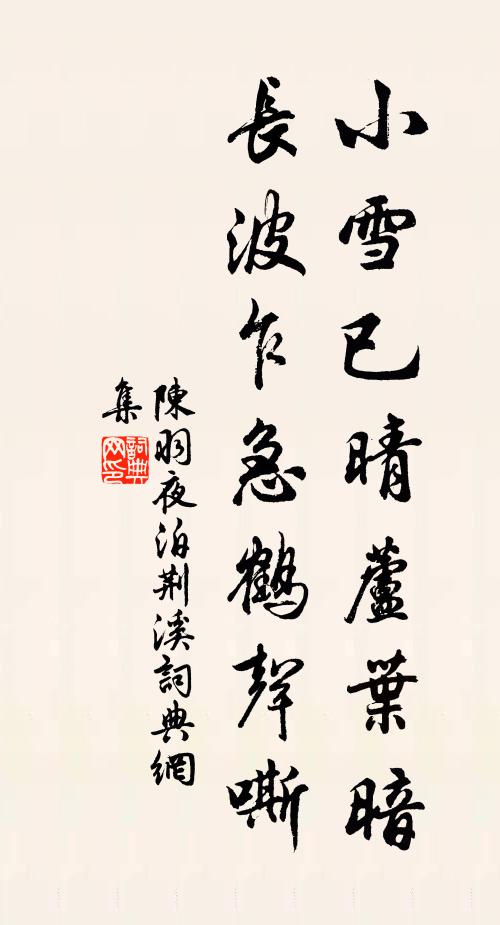 小雪已晴蘆葉暗
長波乍急鶴聲嘶
陳羽夜泊荆溪詞典網
集
詞典
网印